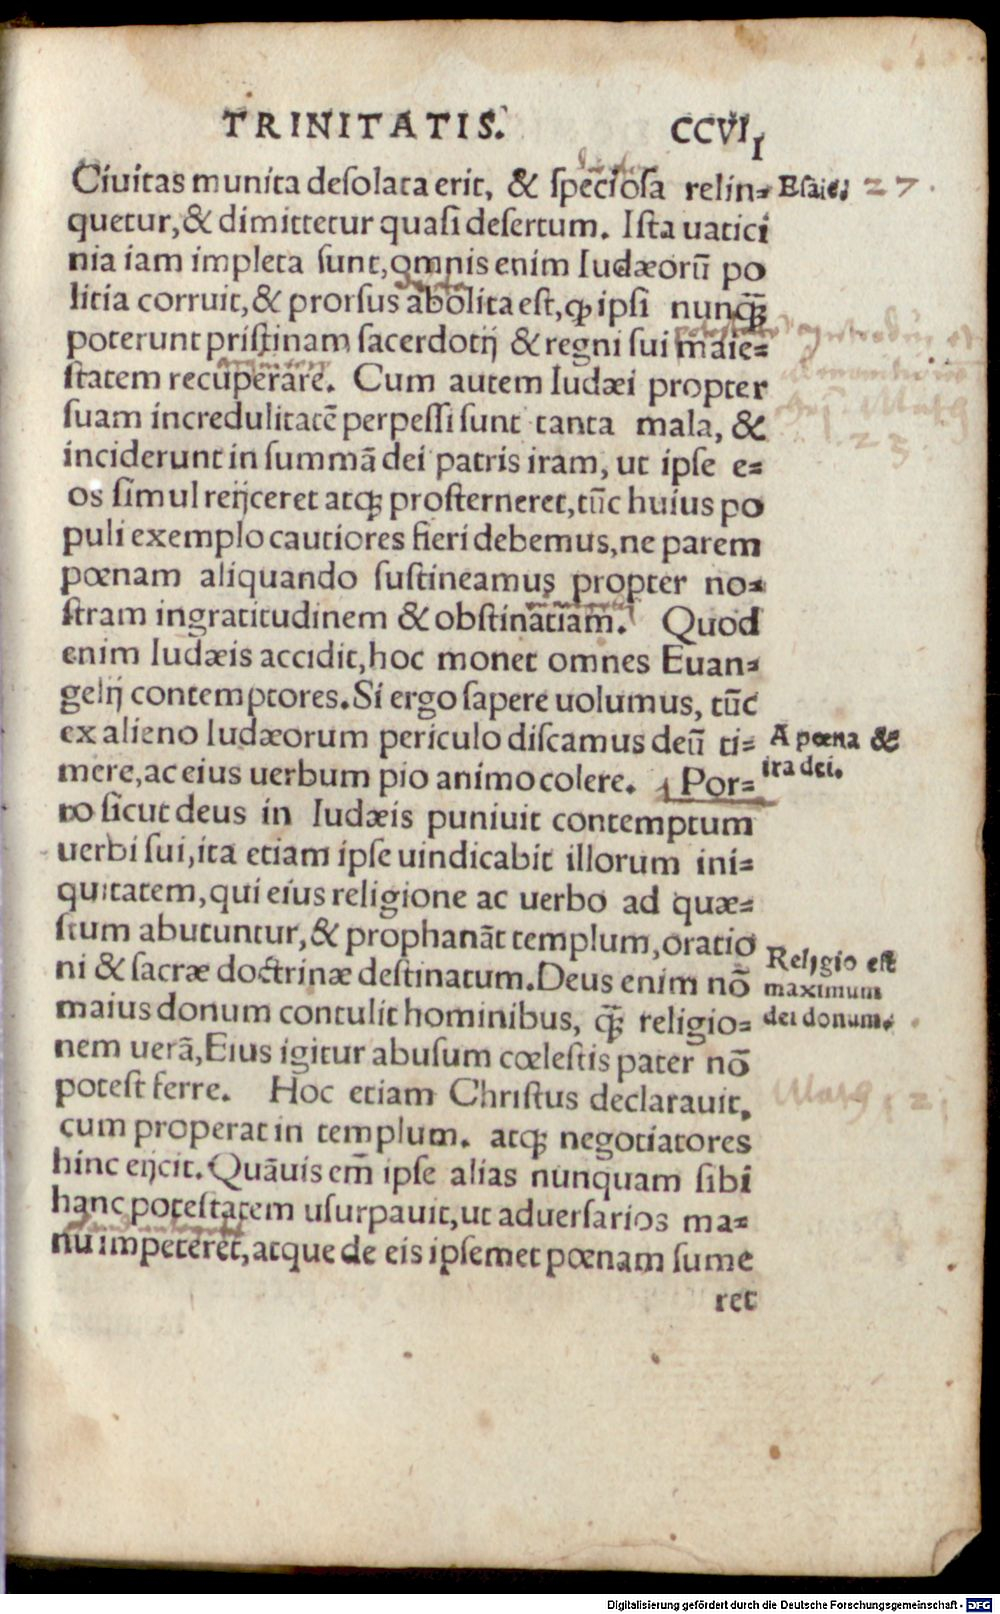 TRINITATIS. CCVII
Ciuitas munita desolata erit, & speciosa relin⸗ Esaie. 27.
quetur, & dimittetur quasi desertum. Ista uatici
nia iam impleta sunt, omnis enim Iudæorū po
litia corruit, & prorsus abolita est, ꝙ ipsi nunꝙ̃
poterunt pristinam sacerdotij & regni sui maie⸗
statem recuperare. Cum autem Iudæi propter
suam incredulitatē perpessi sunt tanta mala, &
inciderunt in summā dei patris iram, ut ipse e⸗
os simul reijceret atqꝫ prosterneret, tūc huius po
puli exemplo cautiores fieri debemus, ne parem
pœnam aliquando sustineamus propter no⸗
stram ingratitudinem & obstinatiam. Quod
enim Iudæis accidit, hoc monet omnes Euan⸗
gelij contemptores. Si ergo sapere uolumus, tūc
ex alieno Iudæorum periculo discamus deū ti⸗
mere, ac eius uerbum pio animo colere. Por⸗
A pœna &
ira dei.
ro sicut deus in Iudæis puniuit contemptum
uerbi sui, ita etiam ipse uindicabit illorum ini⸗
quitatem, qui eius religione ac uerbo ad quæ⸗
stum abutuntur, & prophanāt templum, oratio
ni & sacræ doctrinæ destinatum. Deus enim nō
maius donum contulit hominibus, ꝙ̃ religio⸗
Religio est
maximum
dei donum.
nem uerā, Eius igitur abusum cœlestis pater nō
potest ferre. Hoc etiam Christus declarauit,
Math. 21
cum properat in templum. atqꝫ negotiatores
hinc eijcit. Quāuis em̄ ipse alias nunquam sibi
hanc potestatem usurpauit, ut aduersarios ma⸗
nu impeteret, atque de eis ipsemet pœnam sume
ret
Digitalisierung gefördert durch die Deutsche Forschungsgemeinschaft - DFG